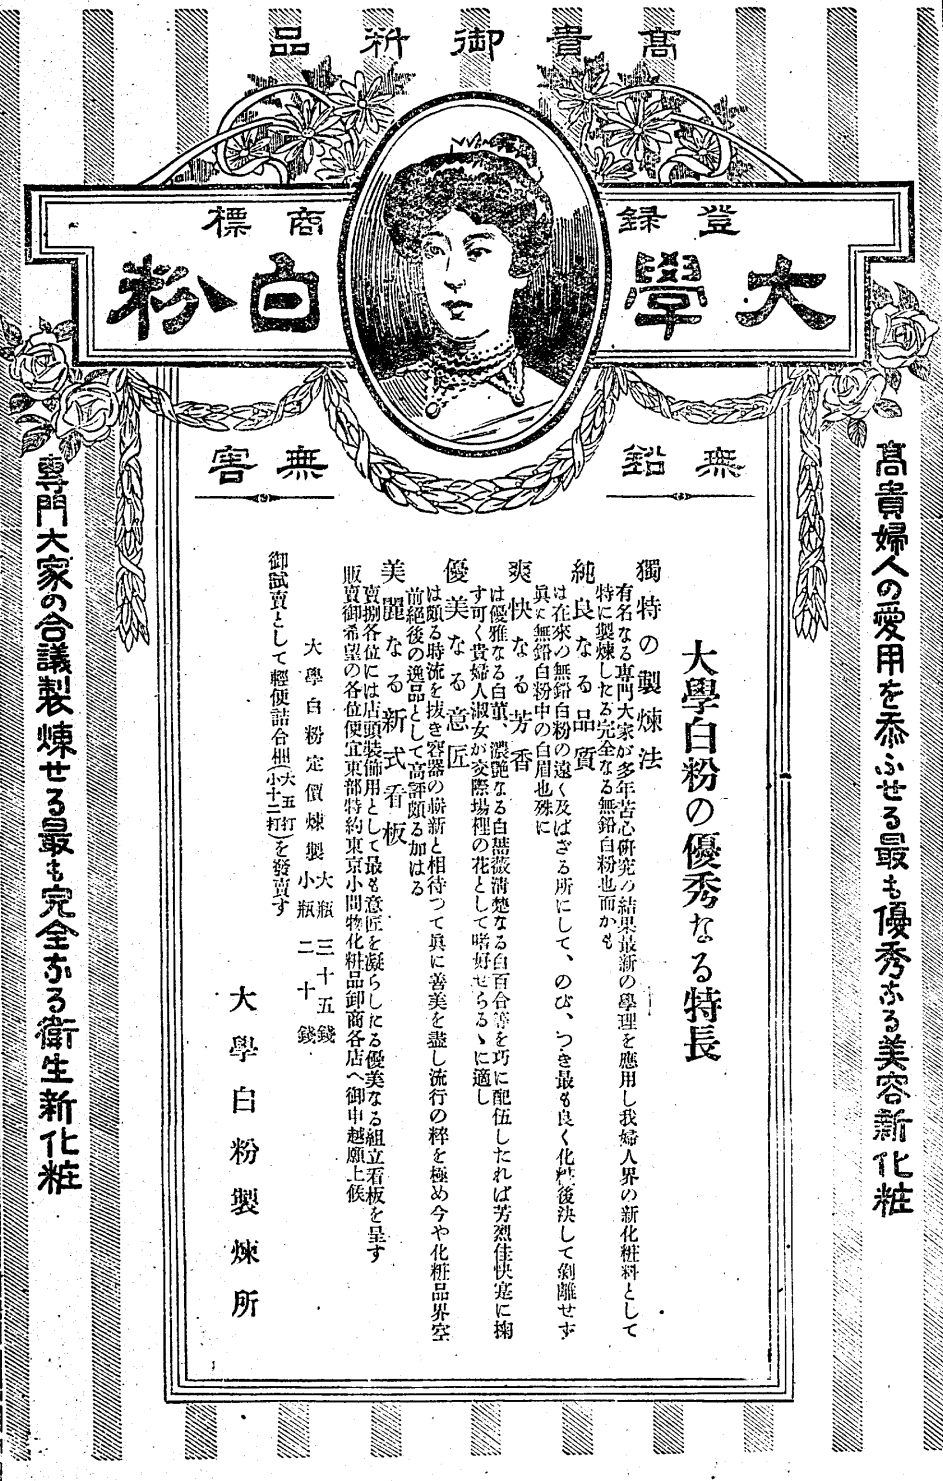 高貴御料品
登録商標
大學白粉
無鉛
無害
高貴婦人の愛用を忝ふせる最も優秀なる美容新化粧
大學白粉の優秀なる特長
獨特の製煉法
有名なる専門大家が多年苦心研究の結果最新の學理を應用し我婦人界の新化粧料として
特に製煉したる完全なる無鉛白粉也而かも
純良なる品質
は在來の無鉛白粉の遠く及ばざる所にして、のび、つき最も良く化粧後決して剥離せず
眞に無鉛白粉中の白眉也殊に
爽快なる芳香
は優雅なる白菫、濃艶なる白薔薇清楚なる白百合等を巧に配伍したれば芳烈佳快寔に掬
す可く貴婦人淑女が交際場裡の花として嗜好せらるゝに適し
優美なる意匠
は頗る時流を抜き容器の嶄新と相待つて眞に善美を盡し流行の粹を極め今や化粧品界空
前絶後の逸品として高評頗る加はる
美麗なる新式看板
賣捌各位には店頭裝飾用として最も意匠を凝らしたる優美なる組立看板を呈す
販賣御希望の各位便宜東部特約東京小間物化粧品卸商各店へ御申越願上候
大學白粉定價煉製 大瓶 三十五錢
小瓶 二十錢
御試賣として輕便詰合凾(大五打小十二打)を發賣す
大學白粉製煉所
専門大家の合議製煉せる最も完全なる衞生新化粧